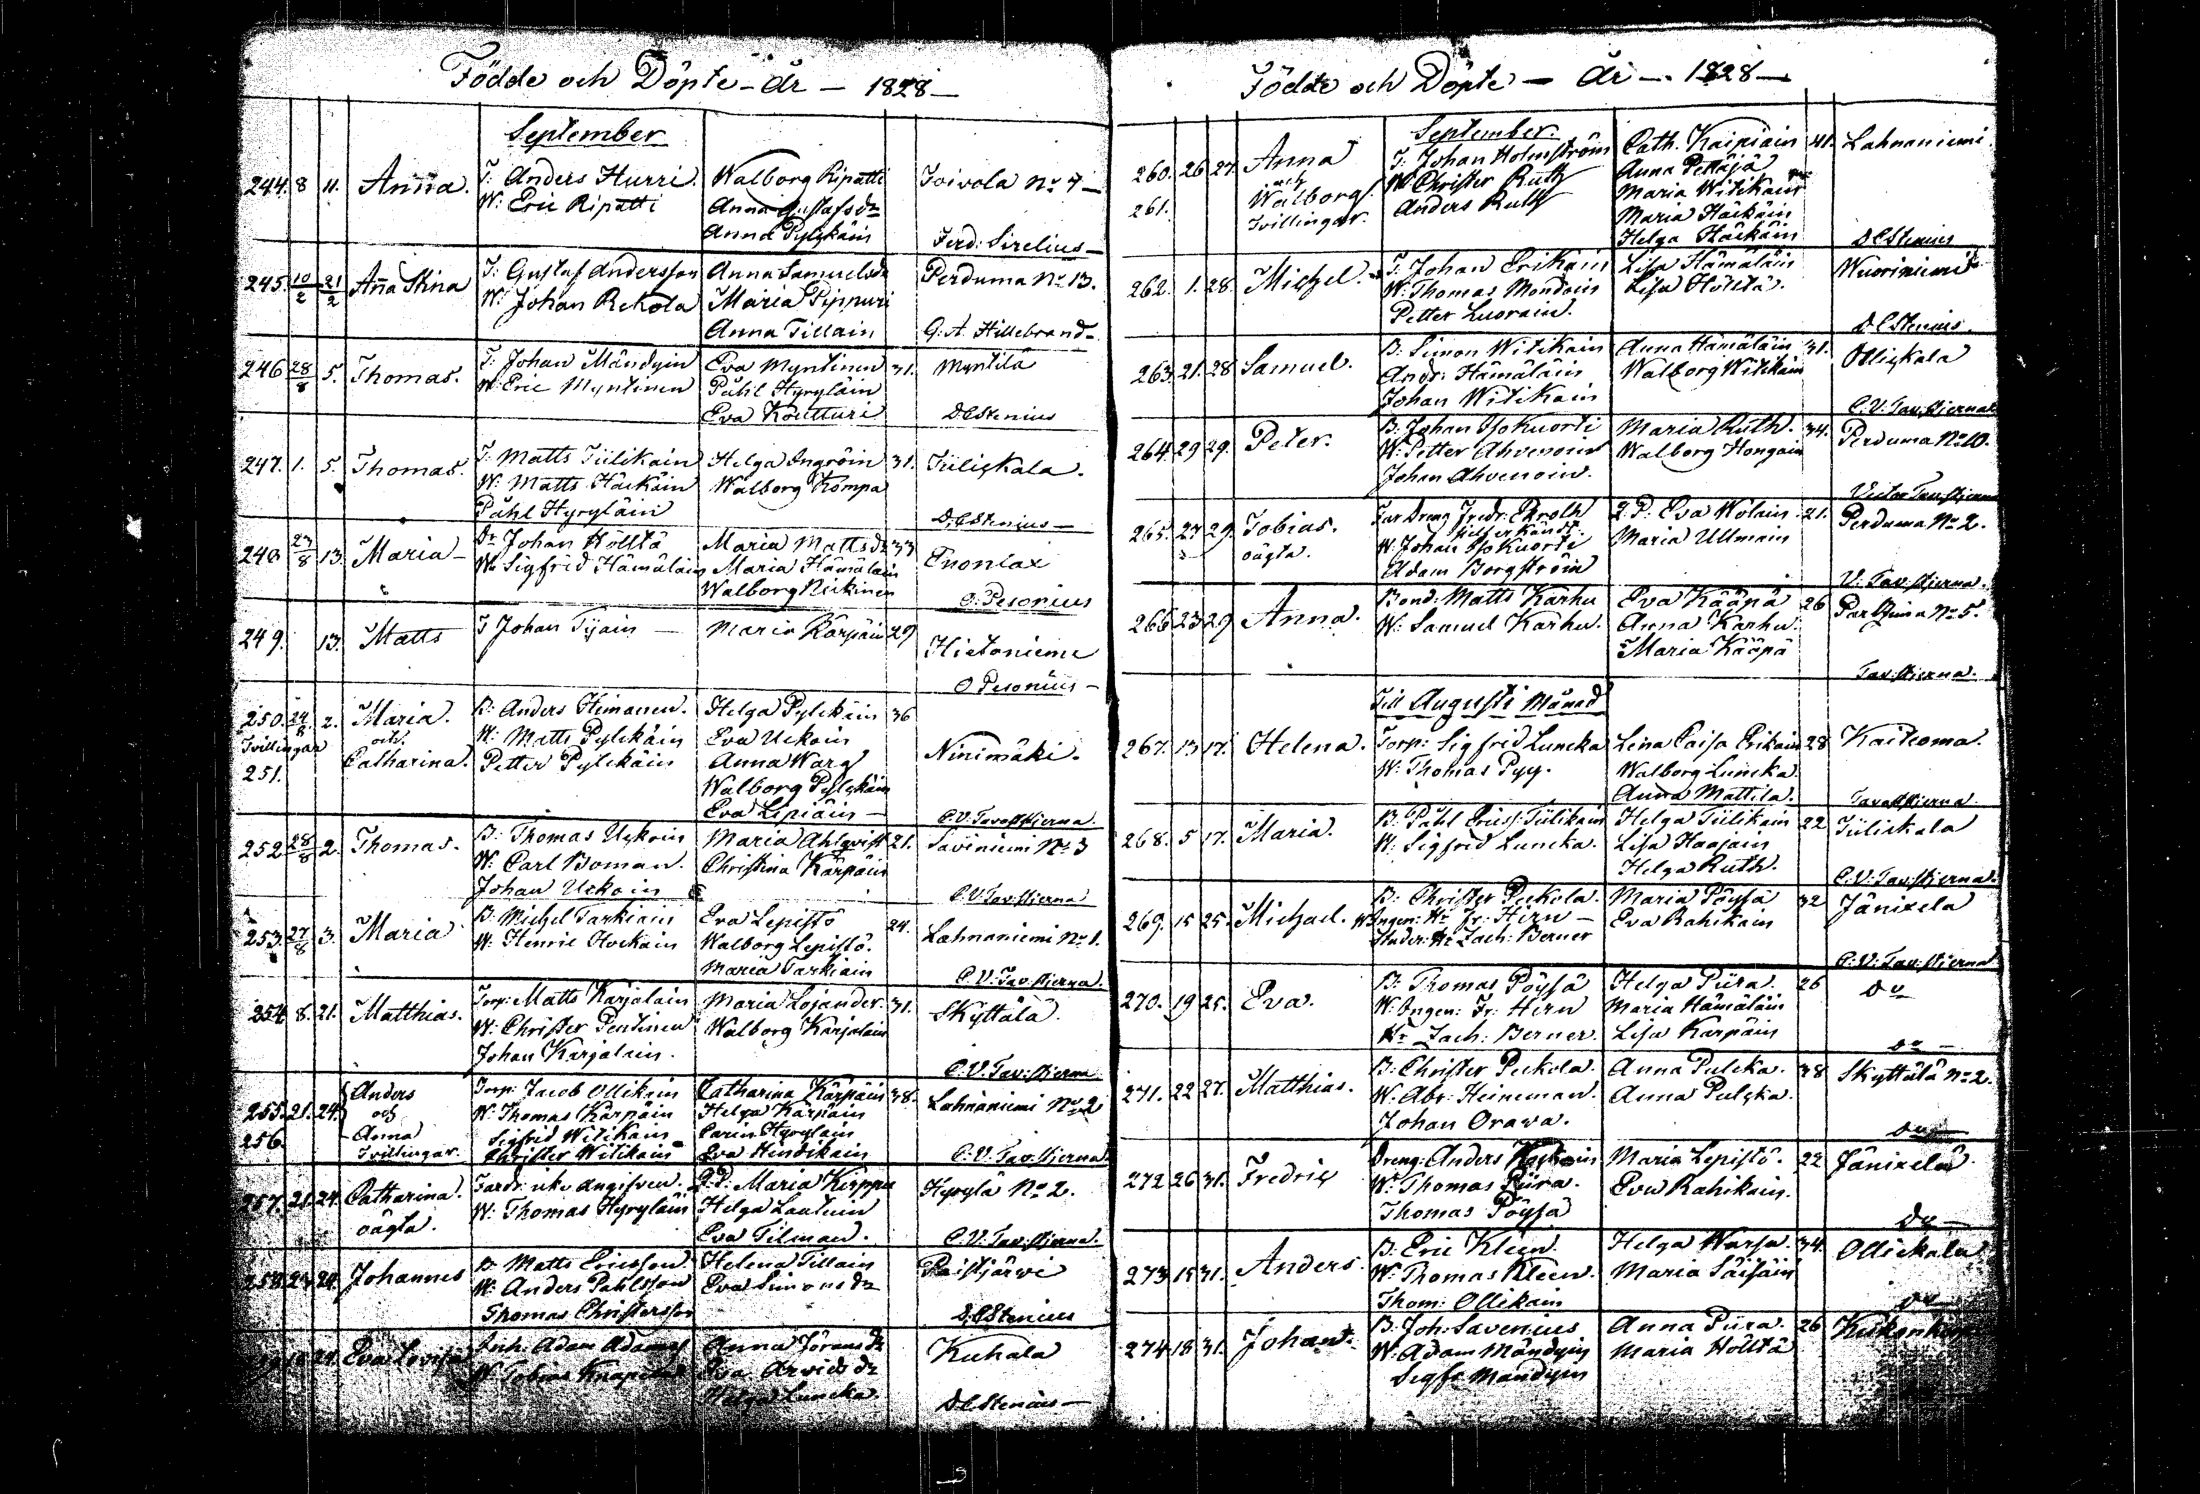 Födde och Döpte - år - 1828 -
September
244. 8 11. Anna. T: Anders Hurri. Walborg Ripatti Toivola No 7 -
W: Eric Ripatti Anna Gustafsdr
Anna Pylckäin Ferd: Sirelius -
245. 10/2 21/2 Anna Stina T: Gustaf Andersson Anna Samuelsdr Perduma No 13.
W: Johan Rekola Maria Pippuri
Anna Tillain G. A. Hillebrand -
246 28/8 5. Thomas. T: Johan Mändyin Eva Myntinen 31. Myntilä
W: Eric Myntinen Påhl Hyryläin
Eva Koutturi D C Stenius
247. 1. 5. Thomas. T: Matts Tiilikain Helga Ingröin 31. Tiiliskala.
W: Matts Häckäin Walborg Kompa
Påhl Hyryläin D. C Stenius -
248 23/8 13. Maria - Dr Johan Hölltä Maria Mattsdr 33 Enonlax
W: Sigfrid Hämäläin Maria Hämäläin
Walborg Nickinen O: Pesonius
249. 13. Matts T Johan Tijain - Maria Kärpäin 29 Hietoniemi
O Pesonius -
250. 24/8. 2. Maria. B: Anders Himanen. Helga Pylckäin 36
Tvillingar och W: Matts Pylckäin Eva Uckoin
251. Catharina. Petter Pylckäin Anna Warg Ninimäki.
Walborg Pylckäin
Eva Lipiäin - C. V. Tavaststjerna.
252 28/8 2. Thomas. B: Thomas Uckoin Maria Ahlqvist 21. Saviniemi No 3
W: Carl Boman. Christina Kärpäin
Johan Uckoin C. V. Tav:stjerna
253. 27/8 3. Maria B: Michel Tarkiain Eva Lepistö 24. Lahnaniemi No 1.
W: Henric Hockain Walborg Lepistö.
Maria Tarkiain C. V: Tav:stjerna.
254 8. 21. Matthias. Torp: Matts Karjalain Maria Lojander. 31. Skyttälä.
W: Christer Pentinen Walborg Karjalain
Johan Karjalain. C. V. Tav:stjerna
255. 21. 24. Anders Torp: Jacob Ollikain Catharina Kärpäin 38. Lahnaniemi No 2
och W: Thomas Kärpäin Helga Kärpäin
256. Anna Sigfrid Witikain Carin Hyryläin
Tvillingar. Christer Witikain Eva Hindikain C: V: Tav:stjerna
257. 21. 24. Catharina. Fardr: icke angifven. Q: P. Maria Kirppu Hyrylä No 2.
oägta. W: Thomas Hyryläin Helga Lautuin
Eva Tilman. C. V. Tav:stjerna.
258. 23. 24. Johannes B Matts Ericsson. Helena Tillain Paistjärvi
W: Anders Påhlsson Eva Simonsdr
Thomas Christersson D. C Stenius
24. Eva Lovisa Adam Adamss Anna Göransdr Kuhala
W Tobias Eva Arvidsdr
Helga Luncka. D. C Stenius -
Födde och Döpte - År - 1828 -
September.
260. 26 27. Anna T: Johan Holmström Cath. Kaipiain 41. Lahnaniemi.
och W: Christer Ruth Anna Pettäjä
261. Walborg Anders Ruth Maria Witikain
Tvillingar. Maria Häckäin
Helga Häckäin D C Stenius
262. 1. 28. Michel. T: Johan Erikäin Lisa Hämäläin Wuoriniemi
W: Thomas Mondoin Lisa Hölltä.
Petter Luorain. D C Stenius.
263. 21. 28 Samuel. B: Simon Witikain Anna Hämäläin 31. Olliskala
Andr: Hämäläin Walborg Witikain
Johan Witikain C. V. Tav.stjerna
264. 29 29. Peter. B: Johan Isokuorti Maria Ruth. 34. Perduma No 10.
W. Petter Ahvenoin Walborg Hongain
Johan Ahvenoin. Victor Tav:stjerna
265. 27 29. Tobias. Far Dreng Fredr: Q: P: Eva Wolain. 21. Perduma No 2.
oägta. W. Johan Isokuorti Maria Ullmain
Adam Borgström V: Tav:stjerna.
266 23 29 Anna. Bond: Matts Karhu Eva Kääpä 26 Parkuina No 5.
W: Samuel Karhu. Anna Karhu.
Maria Kääpä
Tav:stjerna.
Till Augusti Månad
267. 13 17. Helena. Torp: Sigfrid Luncka Lena Caisa Erikain 28 Kaitcoma.
W: Thomas Pyy. Walborg Luncka.
Anna Mattila. Tavaststjerna.
268. 5 17. Maria. B: Påhl Ericss. Tiilikain Helga Tiilikain 22 Tiiliskala
W: Sigfrid Luncka. Lisa Haajain
Helga Ruth. C. V: Tav:stjerna.
269. 15 25. Michael. B: Christer Peckola. Maria Pöysä 32 Jänixelä
W: Ingen: Hr Fr: Hirn - Eva Rahikain
Studer: Hr Zach: Berner C: V: Tav:stjerna
270. 19 25. Eva. B: Thomas Pöysä Helga Piira. 26 Do
W. Ingen: Fr: Hirn Maria Hämäläin
Hr Zach: Berner. Lisa Karpäin Do -
271. 22 27. Matthias. B: Christer Peckola. Anna Pulcka. 38 Skyttälä No 2.
W. Abr: Heineman. Anna Pulcka.
Johan Orava. Do -
272 26 31. Fredric Dreng: Anders Maria Lepistö. 22 Jänixelä
W: Thomas Piira. Eva Rahikain.
Thomas Pöysä Do -
273 15 31. Anders. B: Eric Kleen. Helga Warsa. 34. Ollickala
W: Thomas Kleen. Maria Säisäin
Thom: Ollikain Do
274 18 31. Johan. B. Joh: Savenius Anna Piira. 26
W. Adam Mändyin Maria Hölltä
Sigf: Mändyin